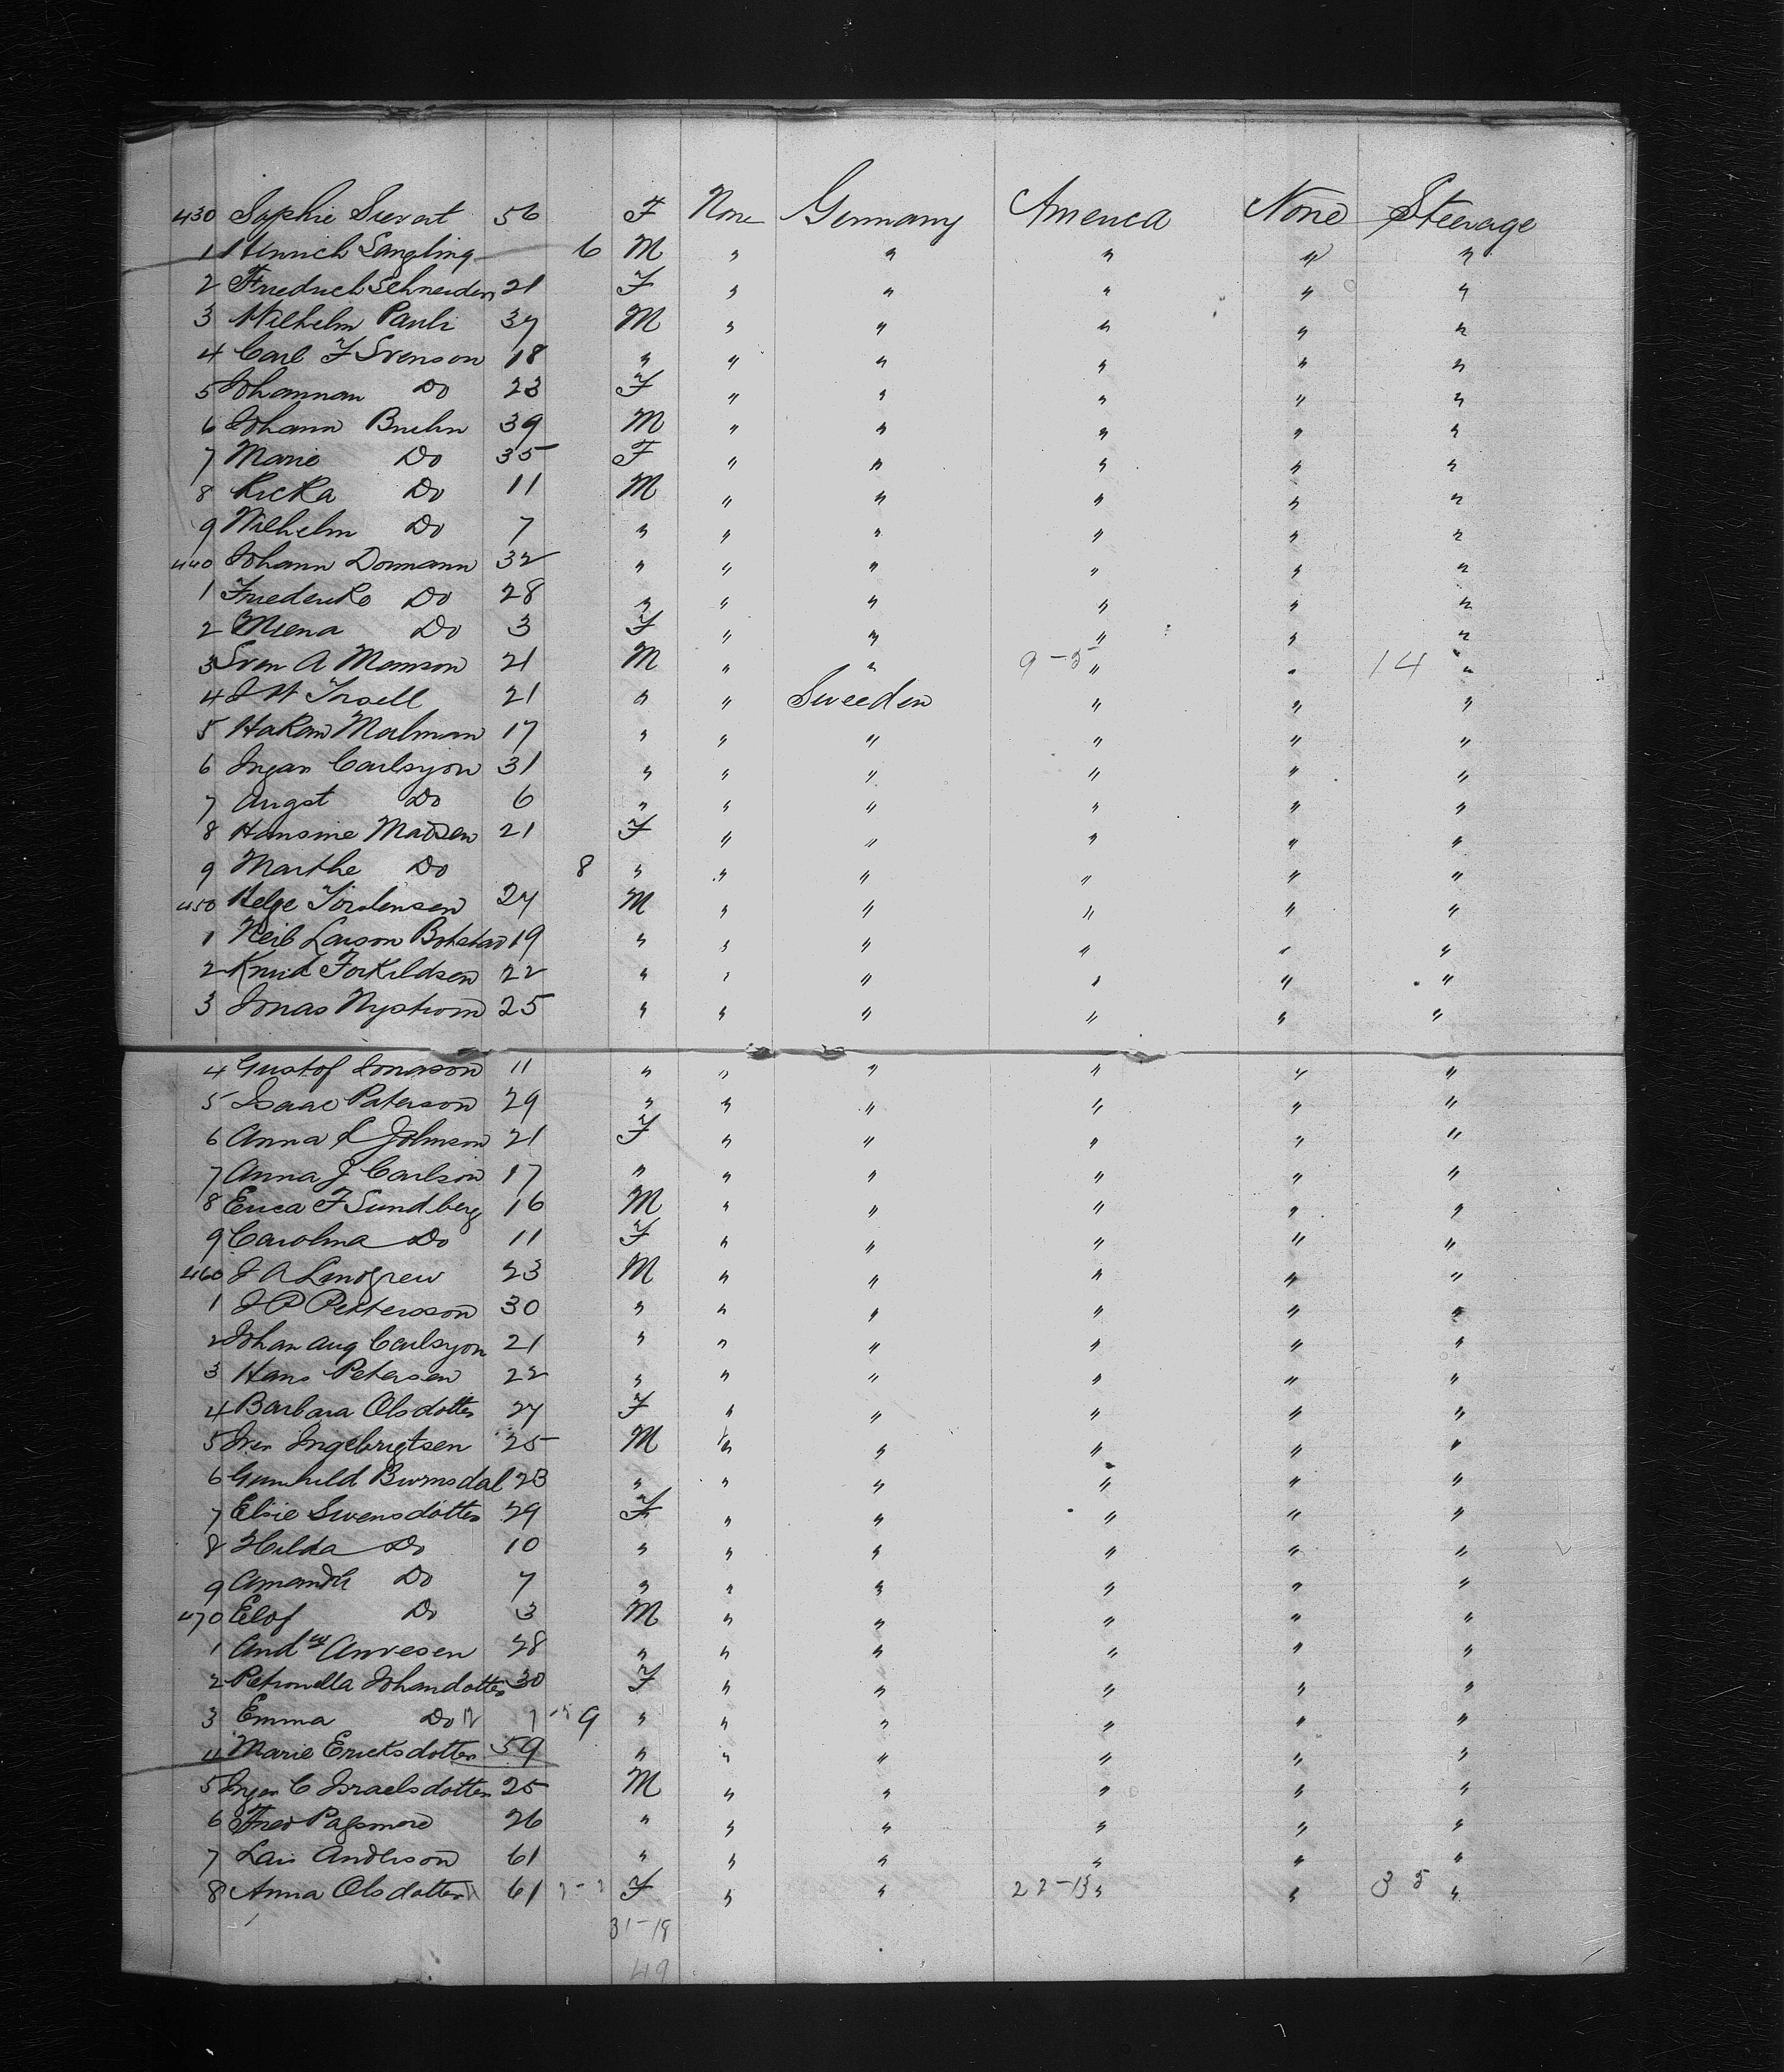 430 Sophie Sievert 56 F None Germany America None Steerage
1 Hinrich Langling 6 M " " " " "
2 Friedrich Schneider 21 F " " " " "
3 Wilhelm Pauli 37 M " " " " "
4 Carl F Svenson 18 " " " " " "
5 Johannan Do 23 F " " " " "
6 Johann Bruhn 39 M " " " " "
7 Marie Do 35 F " " " " "
8 Ricka Do 11 M " " " " "
9 Wilhelm Do 7 " " " " " "
440 Johann Dormann 32 " " " " " "
1 Friederike Do 28 " " " " " "
2 Miena Do 3 F " " " " "
3 Sven A Monson 21 M " " 9-5 " " 14 "
4 J H 21 " " Sweeden " " "
5 Hakan Malman 17 " " " " " "
6 Ingar Carlsyon 31 " " " " " "
7 Augst Do 6 " " " " " "
8 Hansine Madsen 21 F " " " " "
9 Marthe Do 8 " " " " " "
450 Helge 27 M " " " " "
1 Neils Larson 19 " " " " " "
2 Knud Torkildsen 22 " " " " " "
3 Jonas Nystrom 25 " " " " " "
4 Gustof Jonason 11 " " " " " "
5 Isaac Paterson 29 " " " " " "
6 Anna L Johnson 21 F " " " " "
7 Anna J Carlson 17 " " " " " "
8 Erica F Sundberg 16 M " " " " "
9 Carolina Do 11 F " " " " "
460 J A Lindgren 23 M " " " " "
1 J P Pettersson 30 " " " " " "
2 Johan Aug Carlsyon 21 " " " " " "
3 Hans Petersen 22 " " " " " "
4 Barbara Olsdotter 27 F " " " " "
5 Iver Ingebrigtsen 25 M " " " " "
6 Gunhild Burnsdal 23 " " " " " "
7 Elsie Swensdotter 29 F " " " " "
8 Hilda Do 10 " " " " " "
9 Amanda Do 7 " " " " " "
470 Elof Do 3 M " " " " "
1 And^w Anresen 28 " " " " " "
2 Petronella Johandotter 30 F " " " " "
3 Emma Do 9 " " " " " "
4 Marie Ericksdotter 59 " " " " " "
5 Inger C Israelsdotter 25 M " " " " "
6 Fred 26 " " " " " "
7 Lars Anderson 61 " " " " " "
8 Anna Olsdotter 61 F " " 22-13 " " 35 "
31-18
49